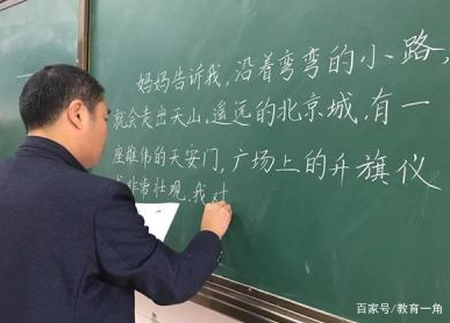 妈妈告诉我,沿着弯弯的小路,
就会走出天山。遥远的北京城,有一
座雄伟的天安门,广场上的升旗仪
式非常壮观。我对
百家号/教育一角